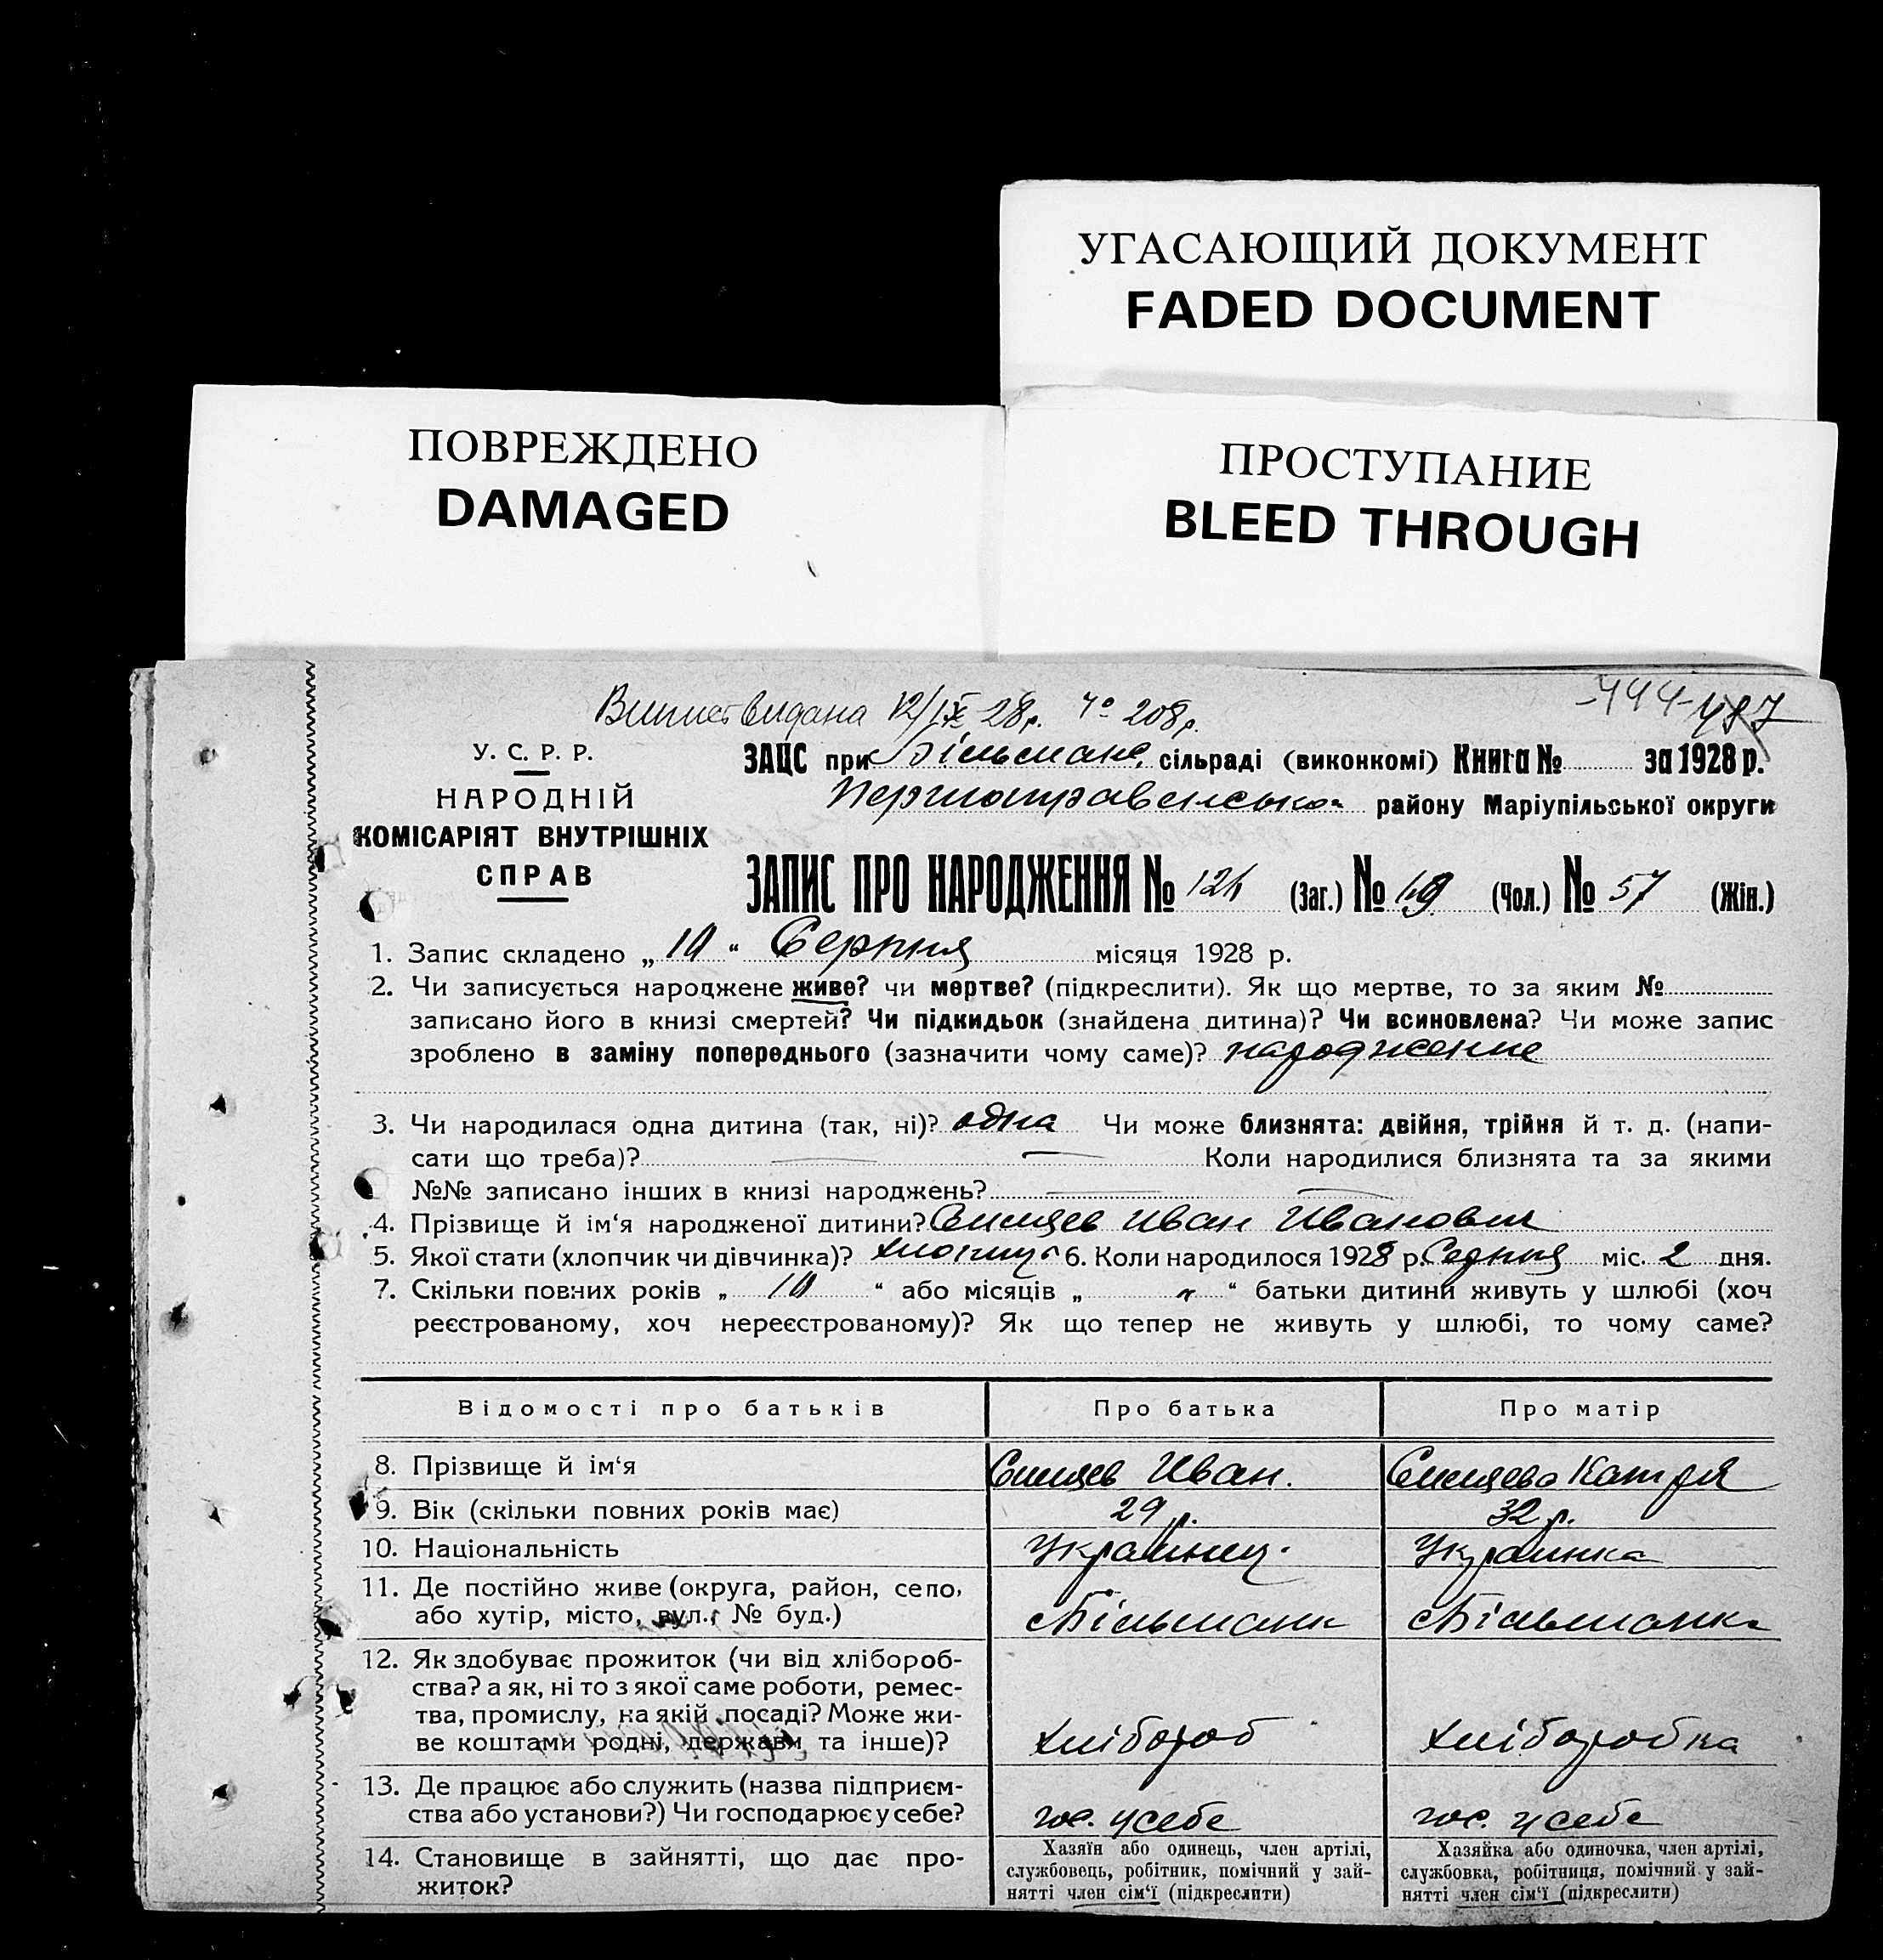 УГАСАЮЩИЙ ДОКУМЕНТ
FADED DOCUMENT
ПОВРЕЖДЕНО
DAMAGED
ПРОСТУПАНИЕ
BLEED THROUGH
видана 12/IX 28р. 208р.
У. С. Р. Р.
НАРОДНІЙ
КОМІСАРІЯТ ВНУТРІШНІХ
СПРАВ
ЗАЦС при Більманк. сільраді (виконкомі) Книга № за 1928 р.
району Маріупільської округи
ЗАПИС ПРО НАРОДЖЕННЯ № (Заг.) № (Чол.) № 57 (Жін.)
1. Запис складено „ 10 “ Серпня місяця 1928 р.
2. Чи записується народжене живе? чи мертве? (підкреслити). Як що мертве, то за яким №
записано його в книзі смертей? Чи підкидьок (знайдена дитина)? Чи всиновлена? Чи може запис
зроблено в заміну попереднього (зазначити чому саме)? народжение
3. Чи народилася одна дитина (так, ні)? одна Чи може близнята: двійня, трійня й т. д. (напи-
сати що треба)? Коли народилися близнята та за якими
№№ записано інших в книзі народжень?
4. Прізвище й ім‘я народженої дитини? Иван Иванович
5. Якої стати (хлопчик чи дівчинка)? хлопчик 6. Коли народилося 1928 р. Серпня міс. 2 дня.
7. Скільки повних років „ 10 “ або місяців „ “ батьки дитини живуть у шлюбі (хоч
реєстрованому, хоч нереєстрованому)? Як що тепер не живуть у шлюбі, то чому саме?
Відомості про батьків Про батька Про матір
8. Прізвище й ім‘я Иван. Катря
9. Вік (скільки повних років має) 29 р. 32 р.
10. Національність Украинец. Украинка
11. Де постійно живе (округа, район, село,
або хутір, місто, вул., № буд.) Більманк Більманка
12. Як здобуває прожиток (чи від хлібороб-
ства? а як, ні то з якої саме роботи, ремес-
тва, промислу, на якій посаді? Може жи-
ве коштами родні, держави та інше)? хлібороб хліборобка
13. Де працює або служить (назва підприєм-
ства або установи?) Чи господарює у себе? гос. у себе гос. у себе
14. Становище в зайнятті, що дає про-
житок?
Хазяїн або одинець, член артілі,
службовець, робітник, помічний у зай-
нятті член сім‘ї (підкреслити)
Хазяйка або одиночка, член артілі,
службовка, робітниця, помічний у зай-
нятті член сім‘ї (підкреслити)